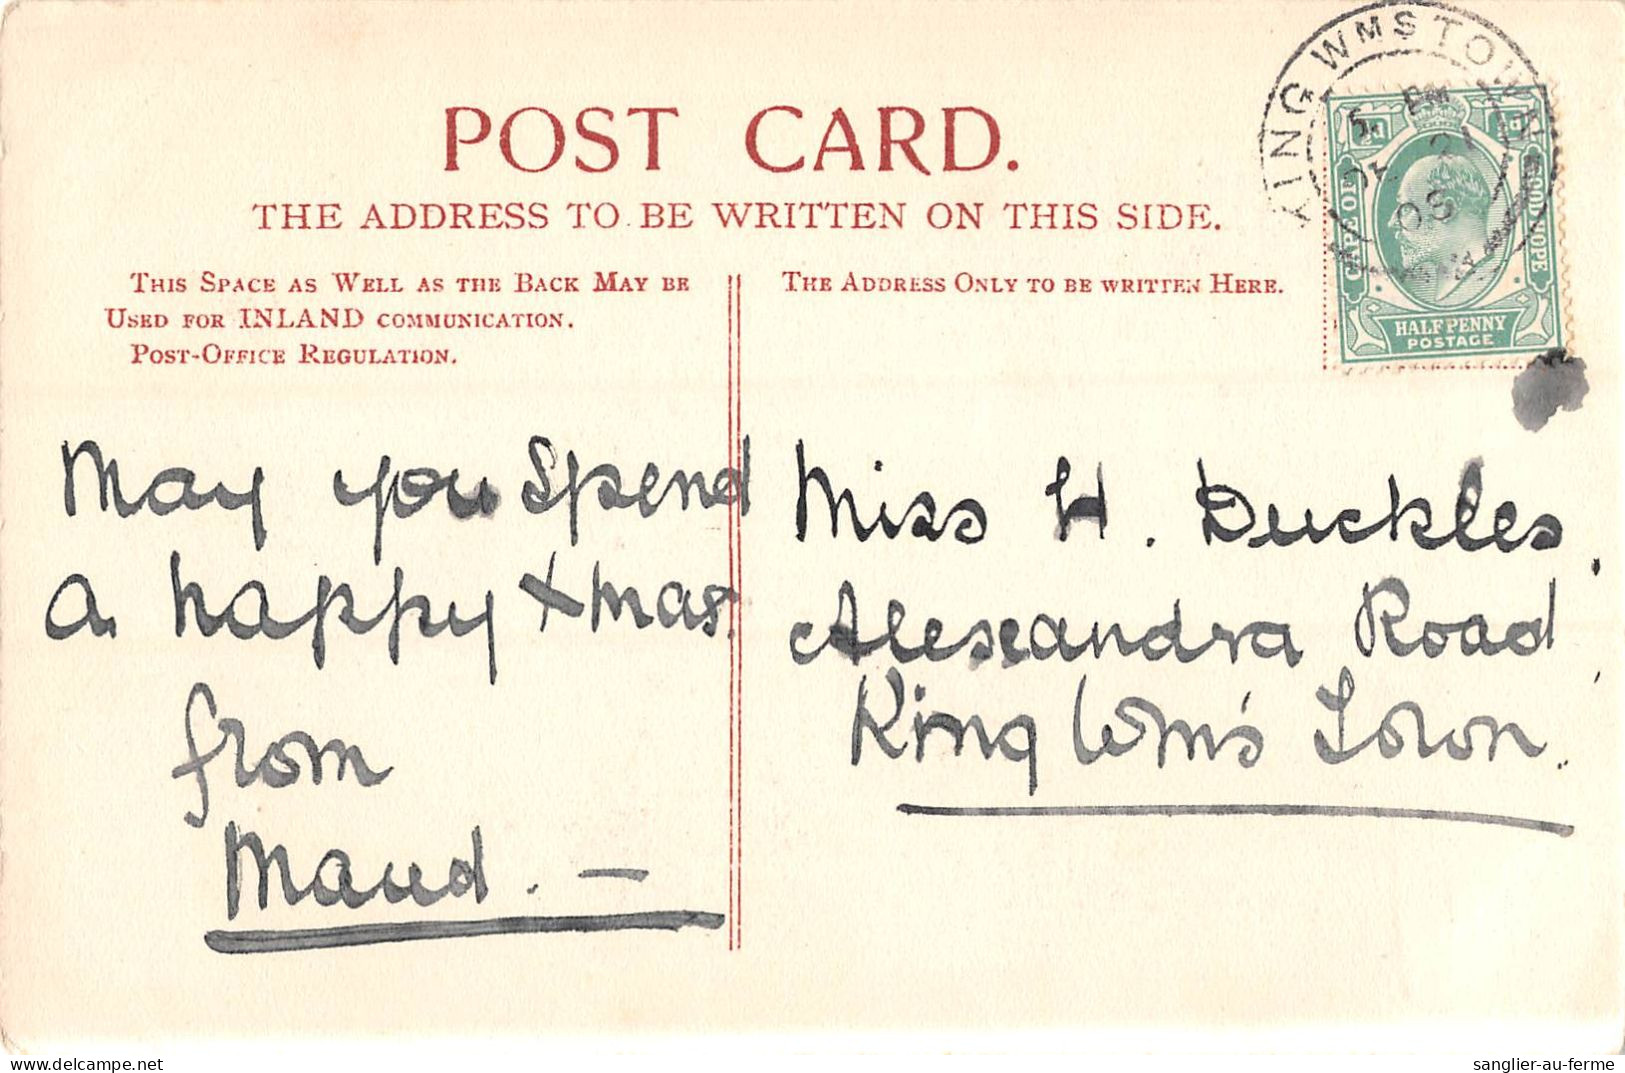 POST CARD.
THE ADDRESS TO BE WRITTEN ON THIS SIDE.
THIS SPACE AS WELL AS THE BACK MAY BE
USED FOR INLAND COMMUNICATION.
POST-OFFICE REGULATION.
THE ADDRESS ONLY TO BE WRITTEN HERE.
KING WMS TOWN
5. PM
DE 21
08
CAPE OF GOOD HOPE
HALFPENNY
POSTAGE
May you spend
a happy Xmas.
from
Maud. —
Miss H. Duckles,
Alexandra Road,
King Wm's Town.
sanglier-au-ferme